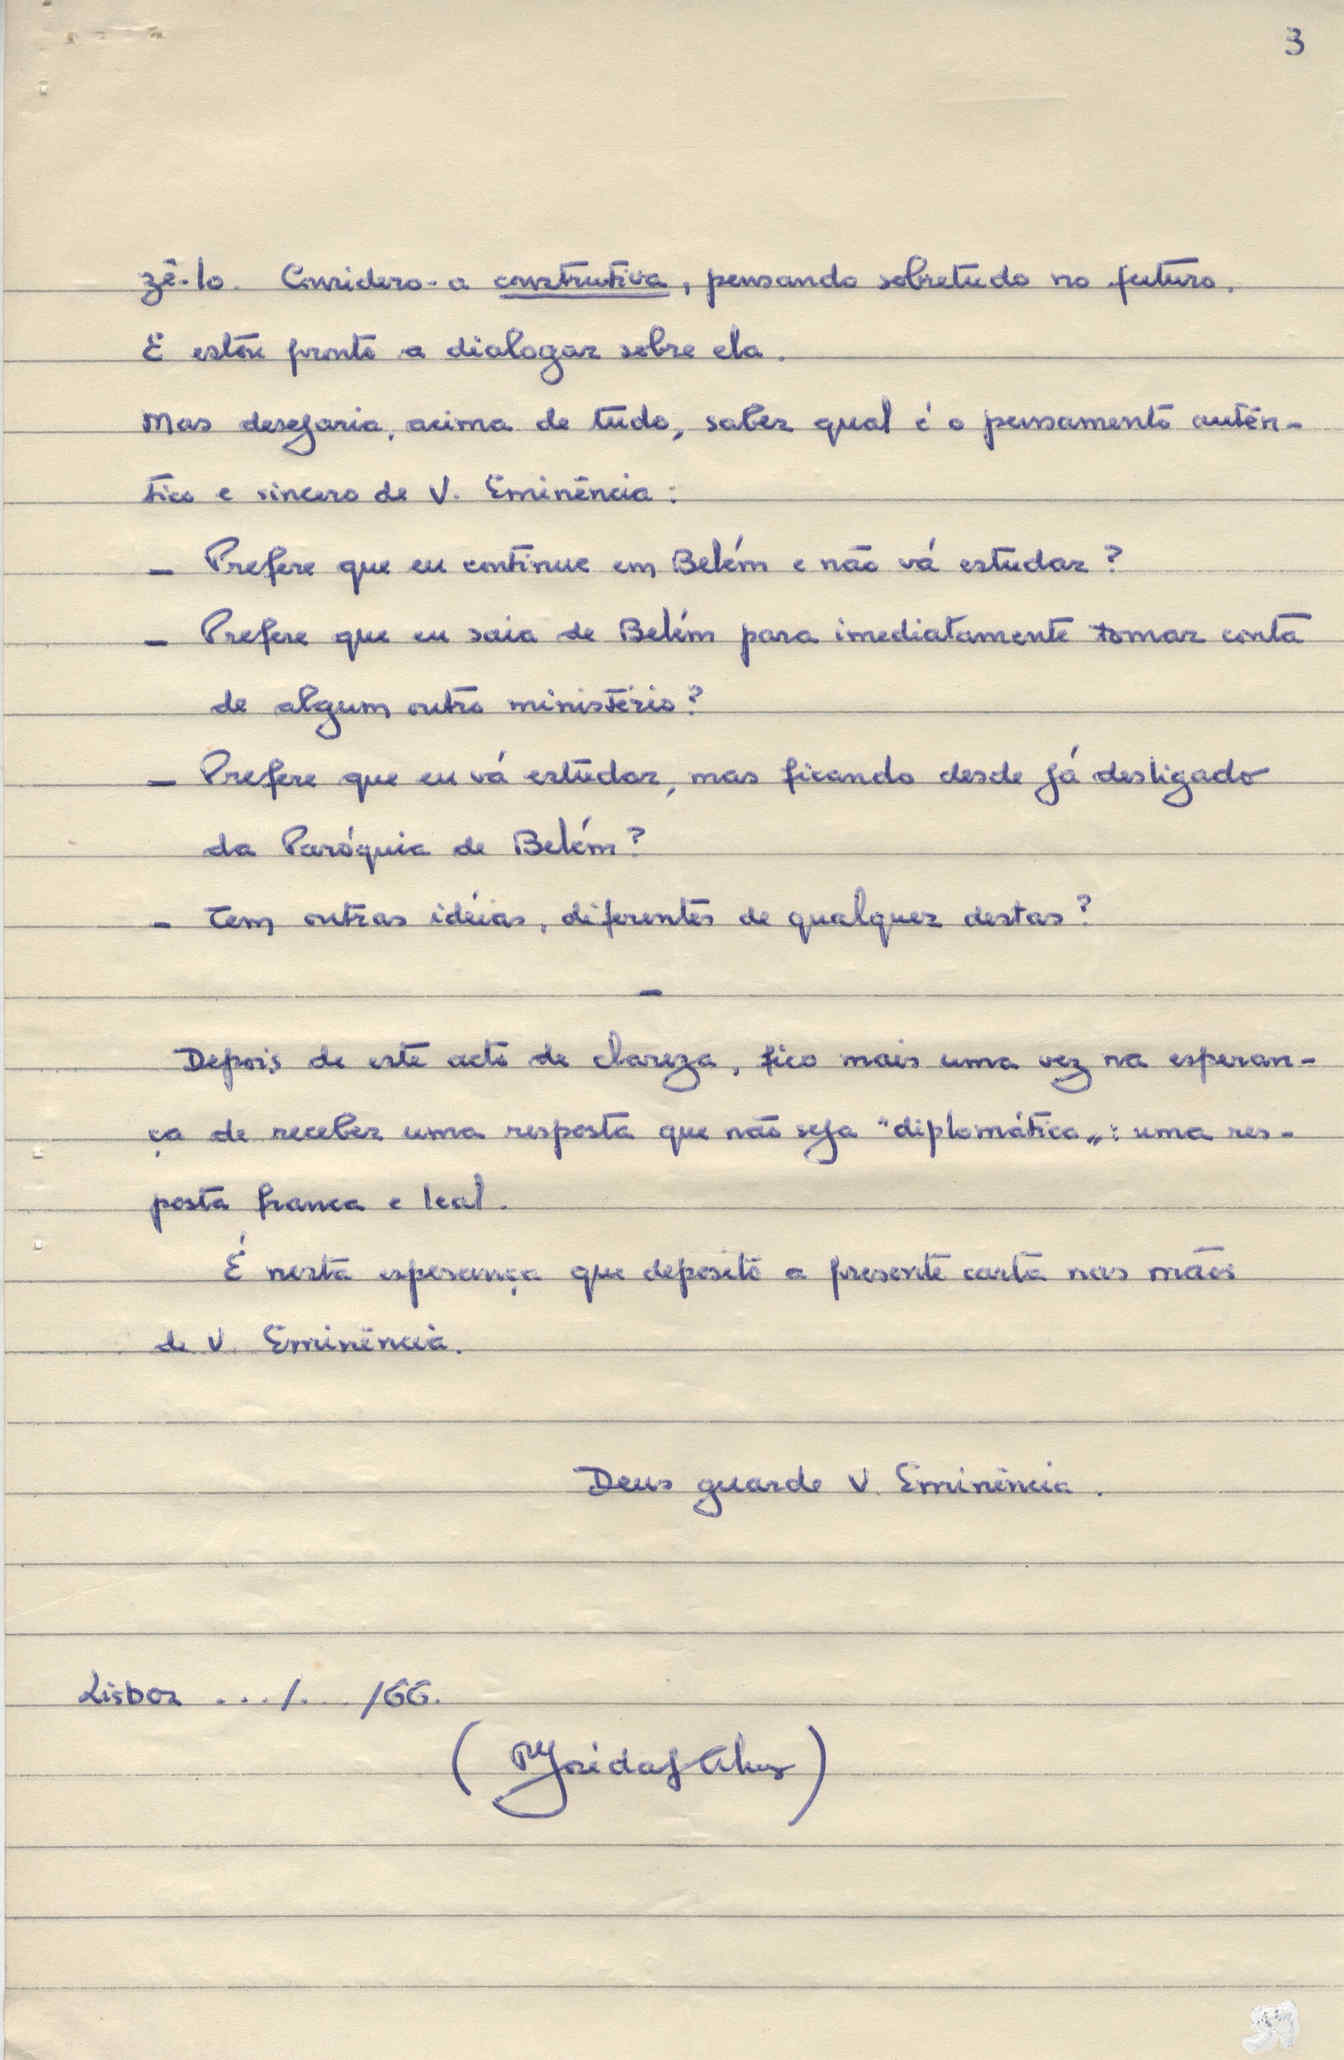 3
zê-lo. Considero-a construtiva, pensando sobretudo no futuro.
E estou pronto a dialogar sobre ela.
Mas desejaria, acima de tudo, saber qual é o pensamento autên-
tico e sincero de V. Eminência:
- Prefere que eu continue em Belém e não vá estudar?
- Prefere que eu saia de Belém para imediatamente tomar conta
de algum outro ministério?
- Prefere que eu vá estudar, mas ficando desde já desligado
da Paróquia de Belém?
- Tem outras idéias, diferentes de qualquer destas?
-
Depois de este acto de clareza, fico mais uma vez na esperan-
ça de receber uma resposta que não seja "diplomática„: uma res-
posta franca e leal.
É nesta esperança que deposito a presente carta nas mãos
de V. Eminência.
Deus guarde V. Eminência.
Lisboa .../. /66.